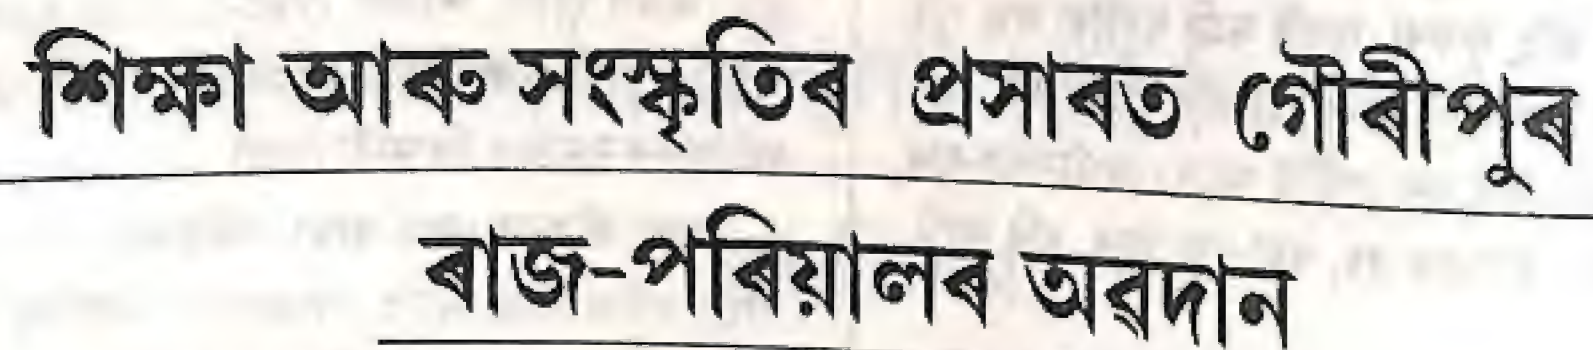 শিক্ষা আৰু সংস্কৃতিৰ প্ৰসাৰত গৌৰীপুৰ
ৰাজ-পৰিয়ালৰ অৱদান